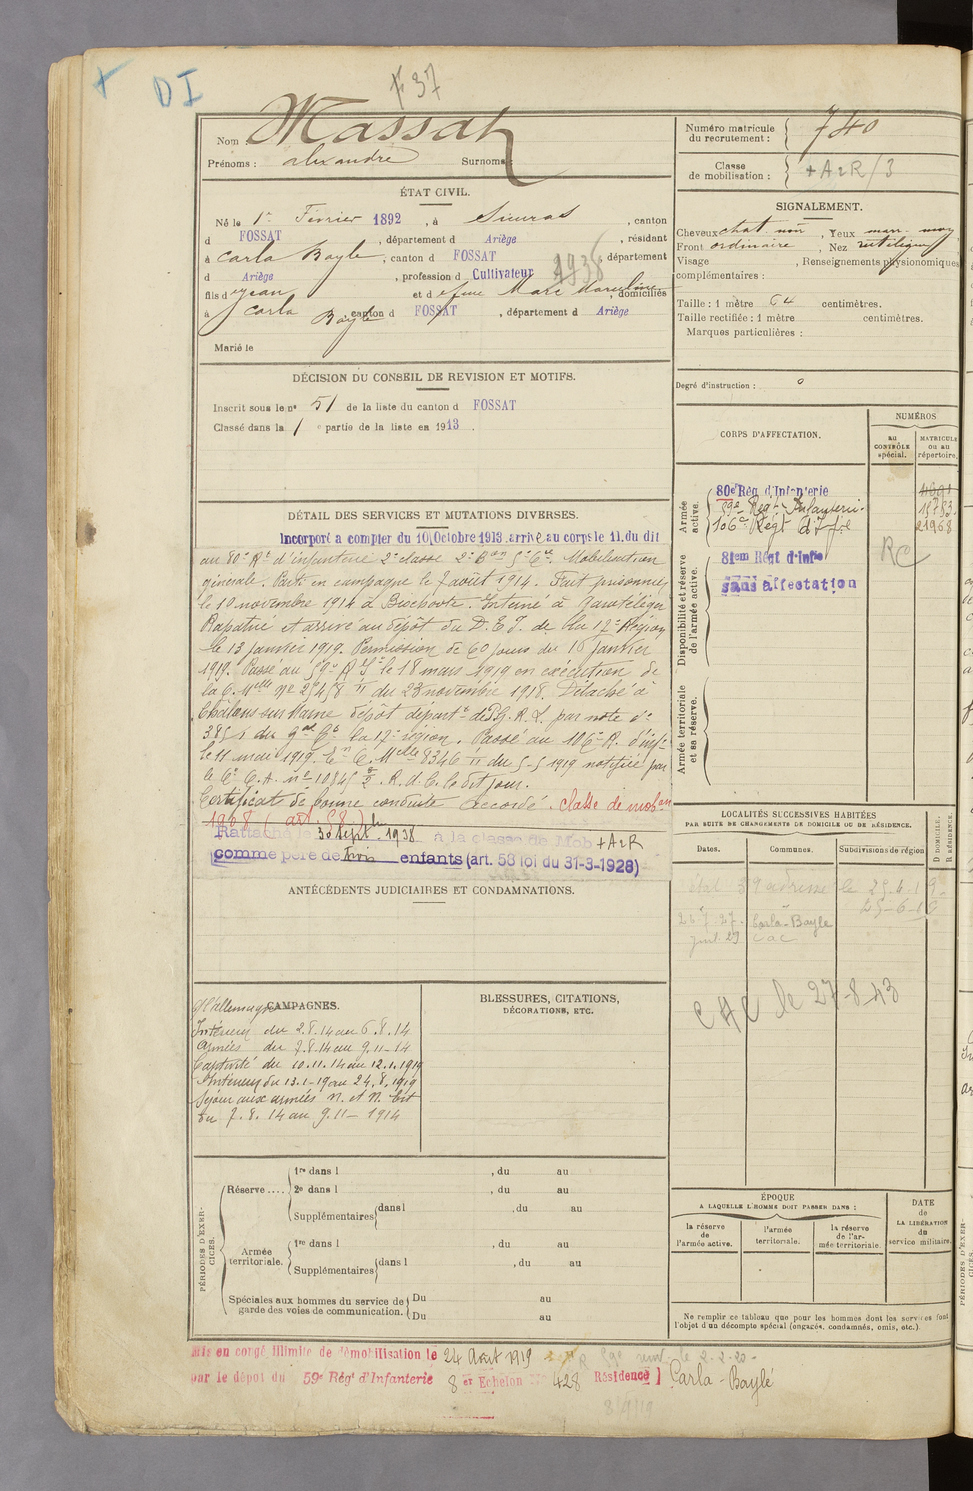 DI
F 37
Nom : Massat
Prénoms : alexandre Surnoms :
ÉTAT CIVIL.
Né le 1er Février 1892, à Sieuras, canton
d FOSSAT, département d Ariège, résidant
à Carla Bayle, canton d FOSSAT, département
d Ariège, profession d Cultivateur 1938
fils d Jean et d feue Marc Marceline, domiciliés
à Carla Bayle canton d FOSSAT, département d Ariège
Marié le
DÉCISION DU CONSEIL DE REVISION ET MOTIFS.
Inscrit sous le no 51 de la liste du canton d FOSSAT
Classé dans la 1e partie de la liste en 1913.
DÉTAIL DES SERVICES ET MUTATIONS DIVERSES.
Incorporé a compter du 10 Octobre 1913 arrivé au corps le 11 du dit
au 80e Rt d'infanterie 2e classe 2e Bon 5e Cie. Mobilisation
générale. Parti en campagne le 7 août 1914. Fait prisonnier
le 10 novembre 1914 à Bixchoote. Interné à Gardélegen
Rapatrié et arrivé au dépôt du D.E.I. de la 17e Région
le 13 janvier 1919. Permission de 60 jours du 16 janvier
1919. Passé au 59e R.I. le 18 mars 1919 en exécution de
la C. Melle No 25458 II du 23 novembre 1918. Détaché à
Châlons sur Marne dépôt départt de P.G.R.L. par note No
385 du gal Ct la 17e région. Passé au 106e R. d'inf.
le 11 mai 1919. En C. Melle 8346 II du 5-5-1919 notifiée par
le C. C.A. no 10545 . R. d. C. le dit jour.
Certificat de bonne conduite accordé. classe de mobon
1908 (art. 58)
Rattaché le 30 Sept. 1938 à la classe de Mob + A2R
comme père de trois enfants (art. 58 loi du 31-3-1928)
ANTÉCÉDENTS JUDICIAIRES ET CONDAMNATIONS.
CAMPAGNES.
Ct l'allemagne
Intérieur du 2.8.14 au 6.8.14
Armées du 7.8.14 au 9.11-14
Captivité du 10.11.14 au 12.1.1919
Intérieur du 13.1-19 au 24.8.1919
Séjour aux armées
du 7.8.14 au 9.11-1914
BLESSURES, CITATIONS,
DÉCORATIONS, ETC.
PÉRIODES D'EXERCICES.
Réserve.... 1re dans l , du au
2e dans l , du au
Supplémentaires dans l , du au
Armée territoriale. 1re dans l , du au
Supplémentaires dans l , du au
Spéciales aux hommes du service de garde des voies de communication. Du au
Du au
Mis en congé illimité de démobilisation le 24 Août 1919
par le dépôt du 59e Rég' d'Infanterie 8 er Echelon No 428 Résidence Carla-Bayle
Numéro matricule du recrutement : 740
Classe de mobilisation : + A2R/3
SIGNALEMENT.
Cheveux chat. noir, Yeux marr. moy
Front ordinaire, Nez rectiligne
Visage , Renseignements physionomiques
complémentaires :
Taille : 1 mètre 64 centimètres.
Taille rectifiée : 1 mètre centimètres.
Marques particulières :
Degré d'instruction : 0
CORPS D'AFFECTATION.
NUMÉROS
au CONTRÔLE spécial.
MATRICULE ou au répertoire.
Armée active.
80e Rég d'Infanterie
59e Regt Infanterie 15783
106e Régt d'Inf 21968
RC
Disponibilité et réserve de l'armée active.
81em Régt d'Infie
sans affectation
Armée territoriale et sa réserve.
LOCALITÉS SUCCESSIVES HABITÉES
PAR SUITE DE CHANGEMENTS DE DOMICILE OU DE RÉSIDENCE.
Dates. Communes. Subdivisions de région D DOMICILE. R RÉSIDENCE.
25-6-19
Carla-Bayle
CAC le 27-8-43
ÉPOQUE
A LAQUELLE L'HOMME DOIT PASSER DANS :
la réserve de l'armée active.
l'armée territoriale.
la réserve de l'armée territoriale.
DATE de LA LIBÉRATION du service militaire.
Ne remplir ce tableau que pour les hommes dont les services font
l'objet d'un décompte spécial (engagés, condamnés, omis, etc.).